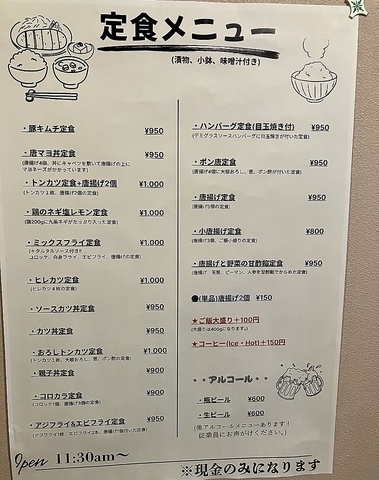 定食メニュー
(漬物、小鉢、味噌汁付き)
・豚キムチ定食 ¥950
・唐マヨ丼定食 ¥950
(唐揚げ4個、丼にキャベツを敷いて唐揚げの上に
マヨネーズがかかっています)
・トンカツ定食+唐揚げ2個 ¥1.000
(トンカツ1枚、唐揚げ2個の定食)
・鶏のネギ塩レモン定食 ¥1.000
(鶏200gに九条ネギがたっぷり入った定食)
・ミックスフライ定食 ¥1.000
(+タルタルソース付き!!
コロッケ、白身フライ、エビフライ、唐揚げの定食)
・ヒレカツ定食 ¥1.000
(ヒレカツ4枚の定食)
・ソースカツ丼定食 ¥950
・カツ丼定食 ¥950
・おろしトンカツ定食 ¥1.000
(トンカツ1枚、大根おろし、葱、ポン酢の定食)
・親子丼定食 ¥900
・コロカラ定食 ¥900
(コロッケ1個、唐揚げ3個の定食)
・アジフライ&エビフライ定食 ¥950
(アジフライ1枚、エビフライ2本、唐揚げ1個付いた定食)
Open 11:30am〜
・ハンバーグ定食(目玉焼き付) ¥950
(デミグラスソースハンバーグに目玉焼きが付いた定食)
・ポン唐定食 ¥950
(唐揚げ4個に大根おろし、葱、ポン酢が付いた定食)
・唐揚げ定食 ¥950
(唐揚げ5個の定食)
・小唐揚げ定食 ¥800
(唐揚げ3個、ご飯小盛りの定食)
・唐揚げと野菜の甘酢餡定食 ¥950
(唐揚げ、玉葱、ピーマン、人参を甘酢餡でからめた定食)
●(単品)唐揚げ2個 ¥150
★ご飯大盛り+100円
(大盛りは400gになります。)
★コーヒー(Ice・Hot)+150円
・・アルコール・・
・瓶ビール ¥600
・生ビール ¥600
(他アルコールメニューあります!
従業員にお声がけください。)
※現金のみになります